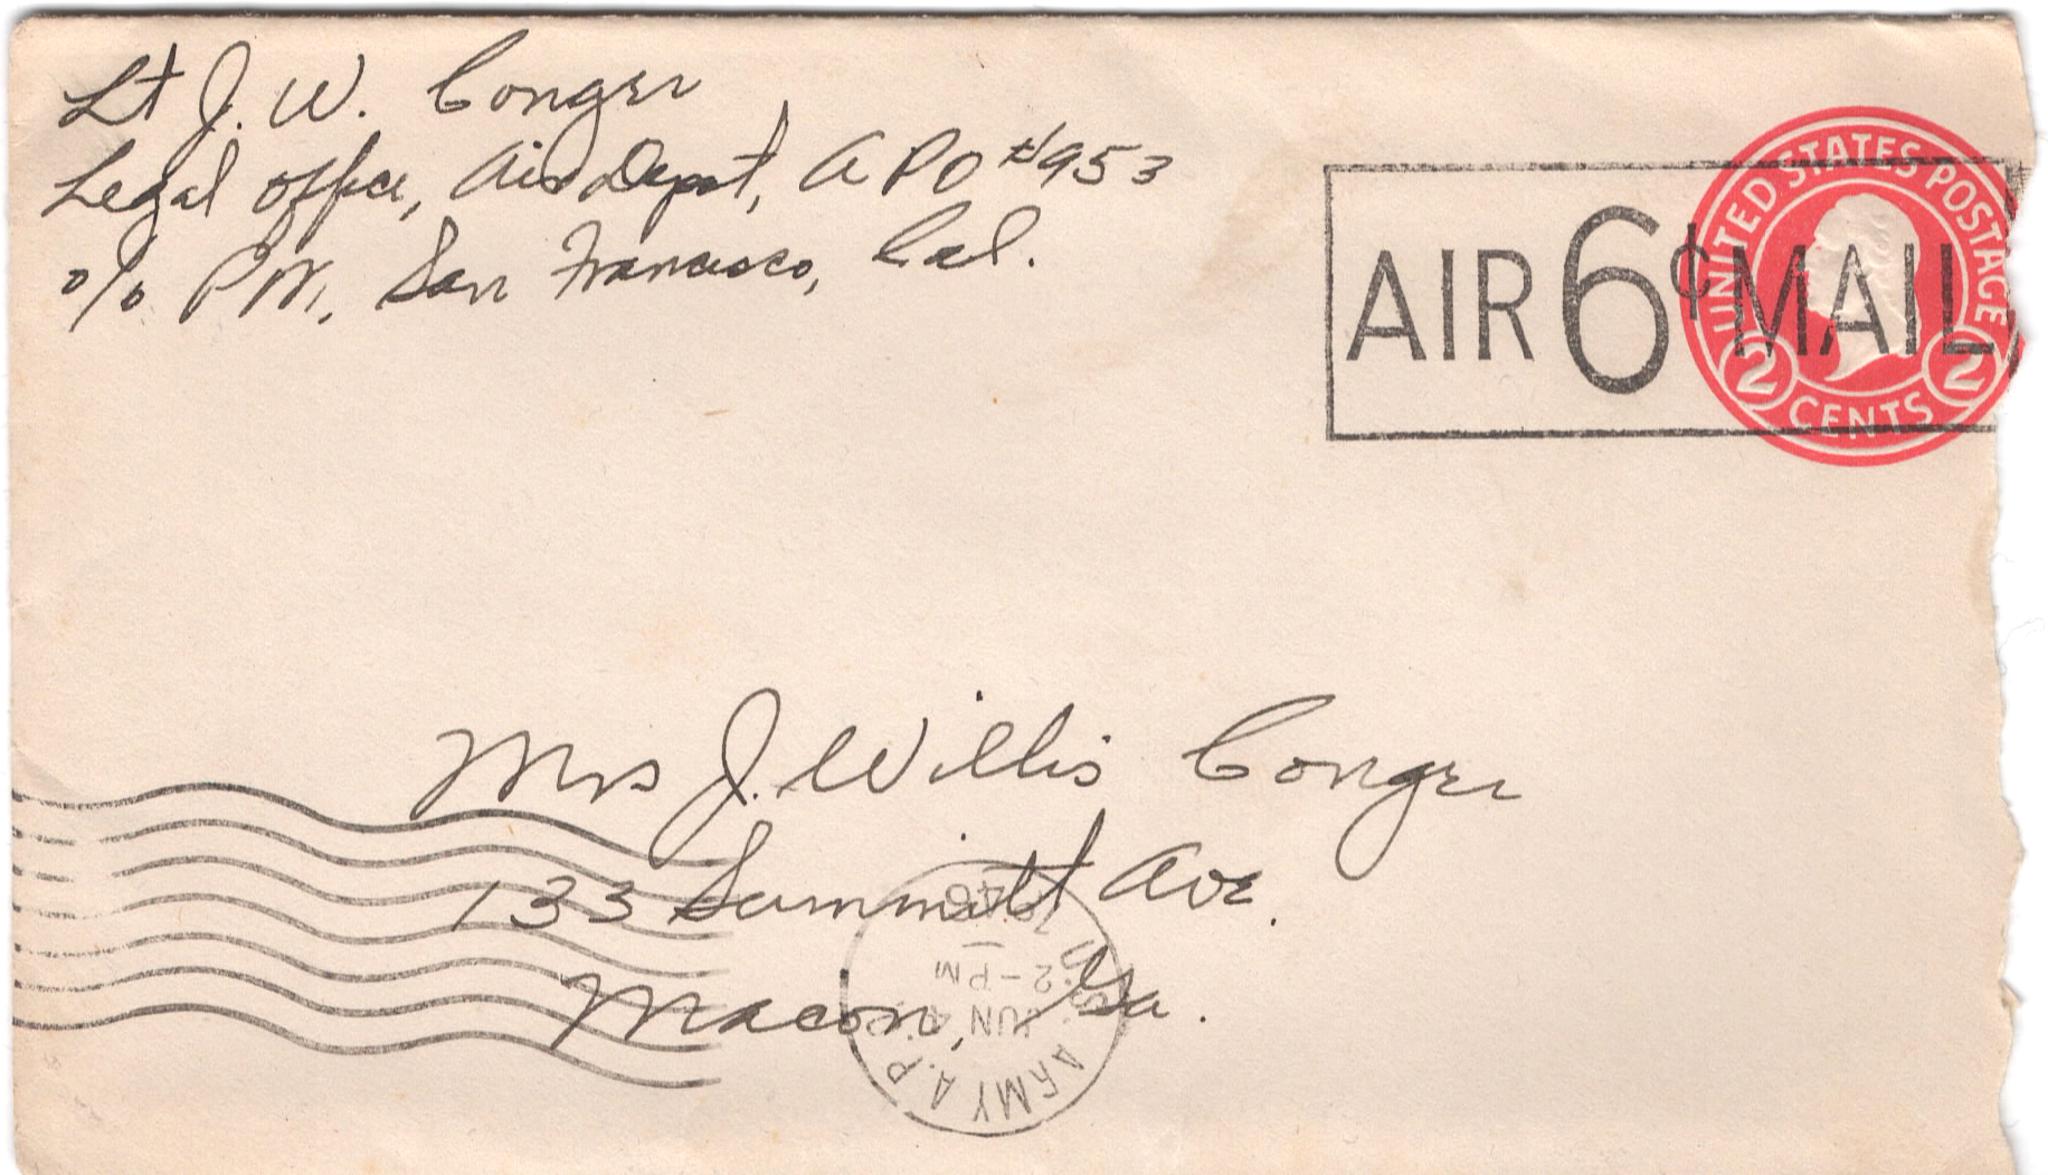 Lt J. W. Conger
Legal Office, Air Depot, APO #953
c/o PM, San Francisco, Cal.
UNITED STATES POSTAGE
2 CENTS 2
AIR 6¢ MAIL
Mrs J. Willis Conger
133 Summitt Ave.
Macon, Ga.
U.S. ARMY A.P.O.
JUN
2-PM
1946